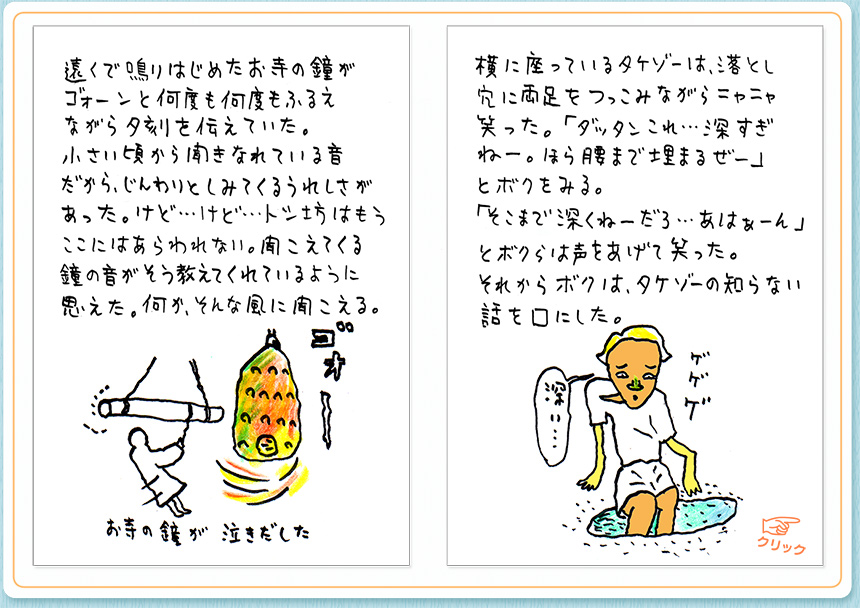 遠くで鳴りはじめたお寺の鐘が
ゴォーンと何度も何度もふるえ
ながら夕刻を伝えていた。
小さい頃から聞きなれている音
だから、じんわりとしみてくるうれしさが
あった。けど…けど…トン坊はもう
ここにはあらわれない。聞こえてくる
鐘の音がそう教えてくれているように
思えた。何か、そんな風に聞こえる。
ゴォー
お寺の鐘が 泣きだした
横に座っているタケゾーは、落とし
穴に両足をつっこみながらニャニャ
笑った。「ダッタンこれ…深すぎ
ねー。ほら腰まで埋まるぜー」
とボクをみる。
「そこまで深くねーだろ…あはぁーん」
とボクらは声をあげて笑った。
それからボクは、タケゾーの知らない
話を口にした。
深い…
ゲゲゲ
クリック